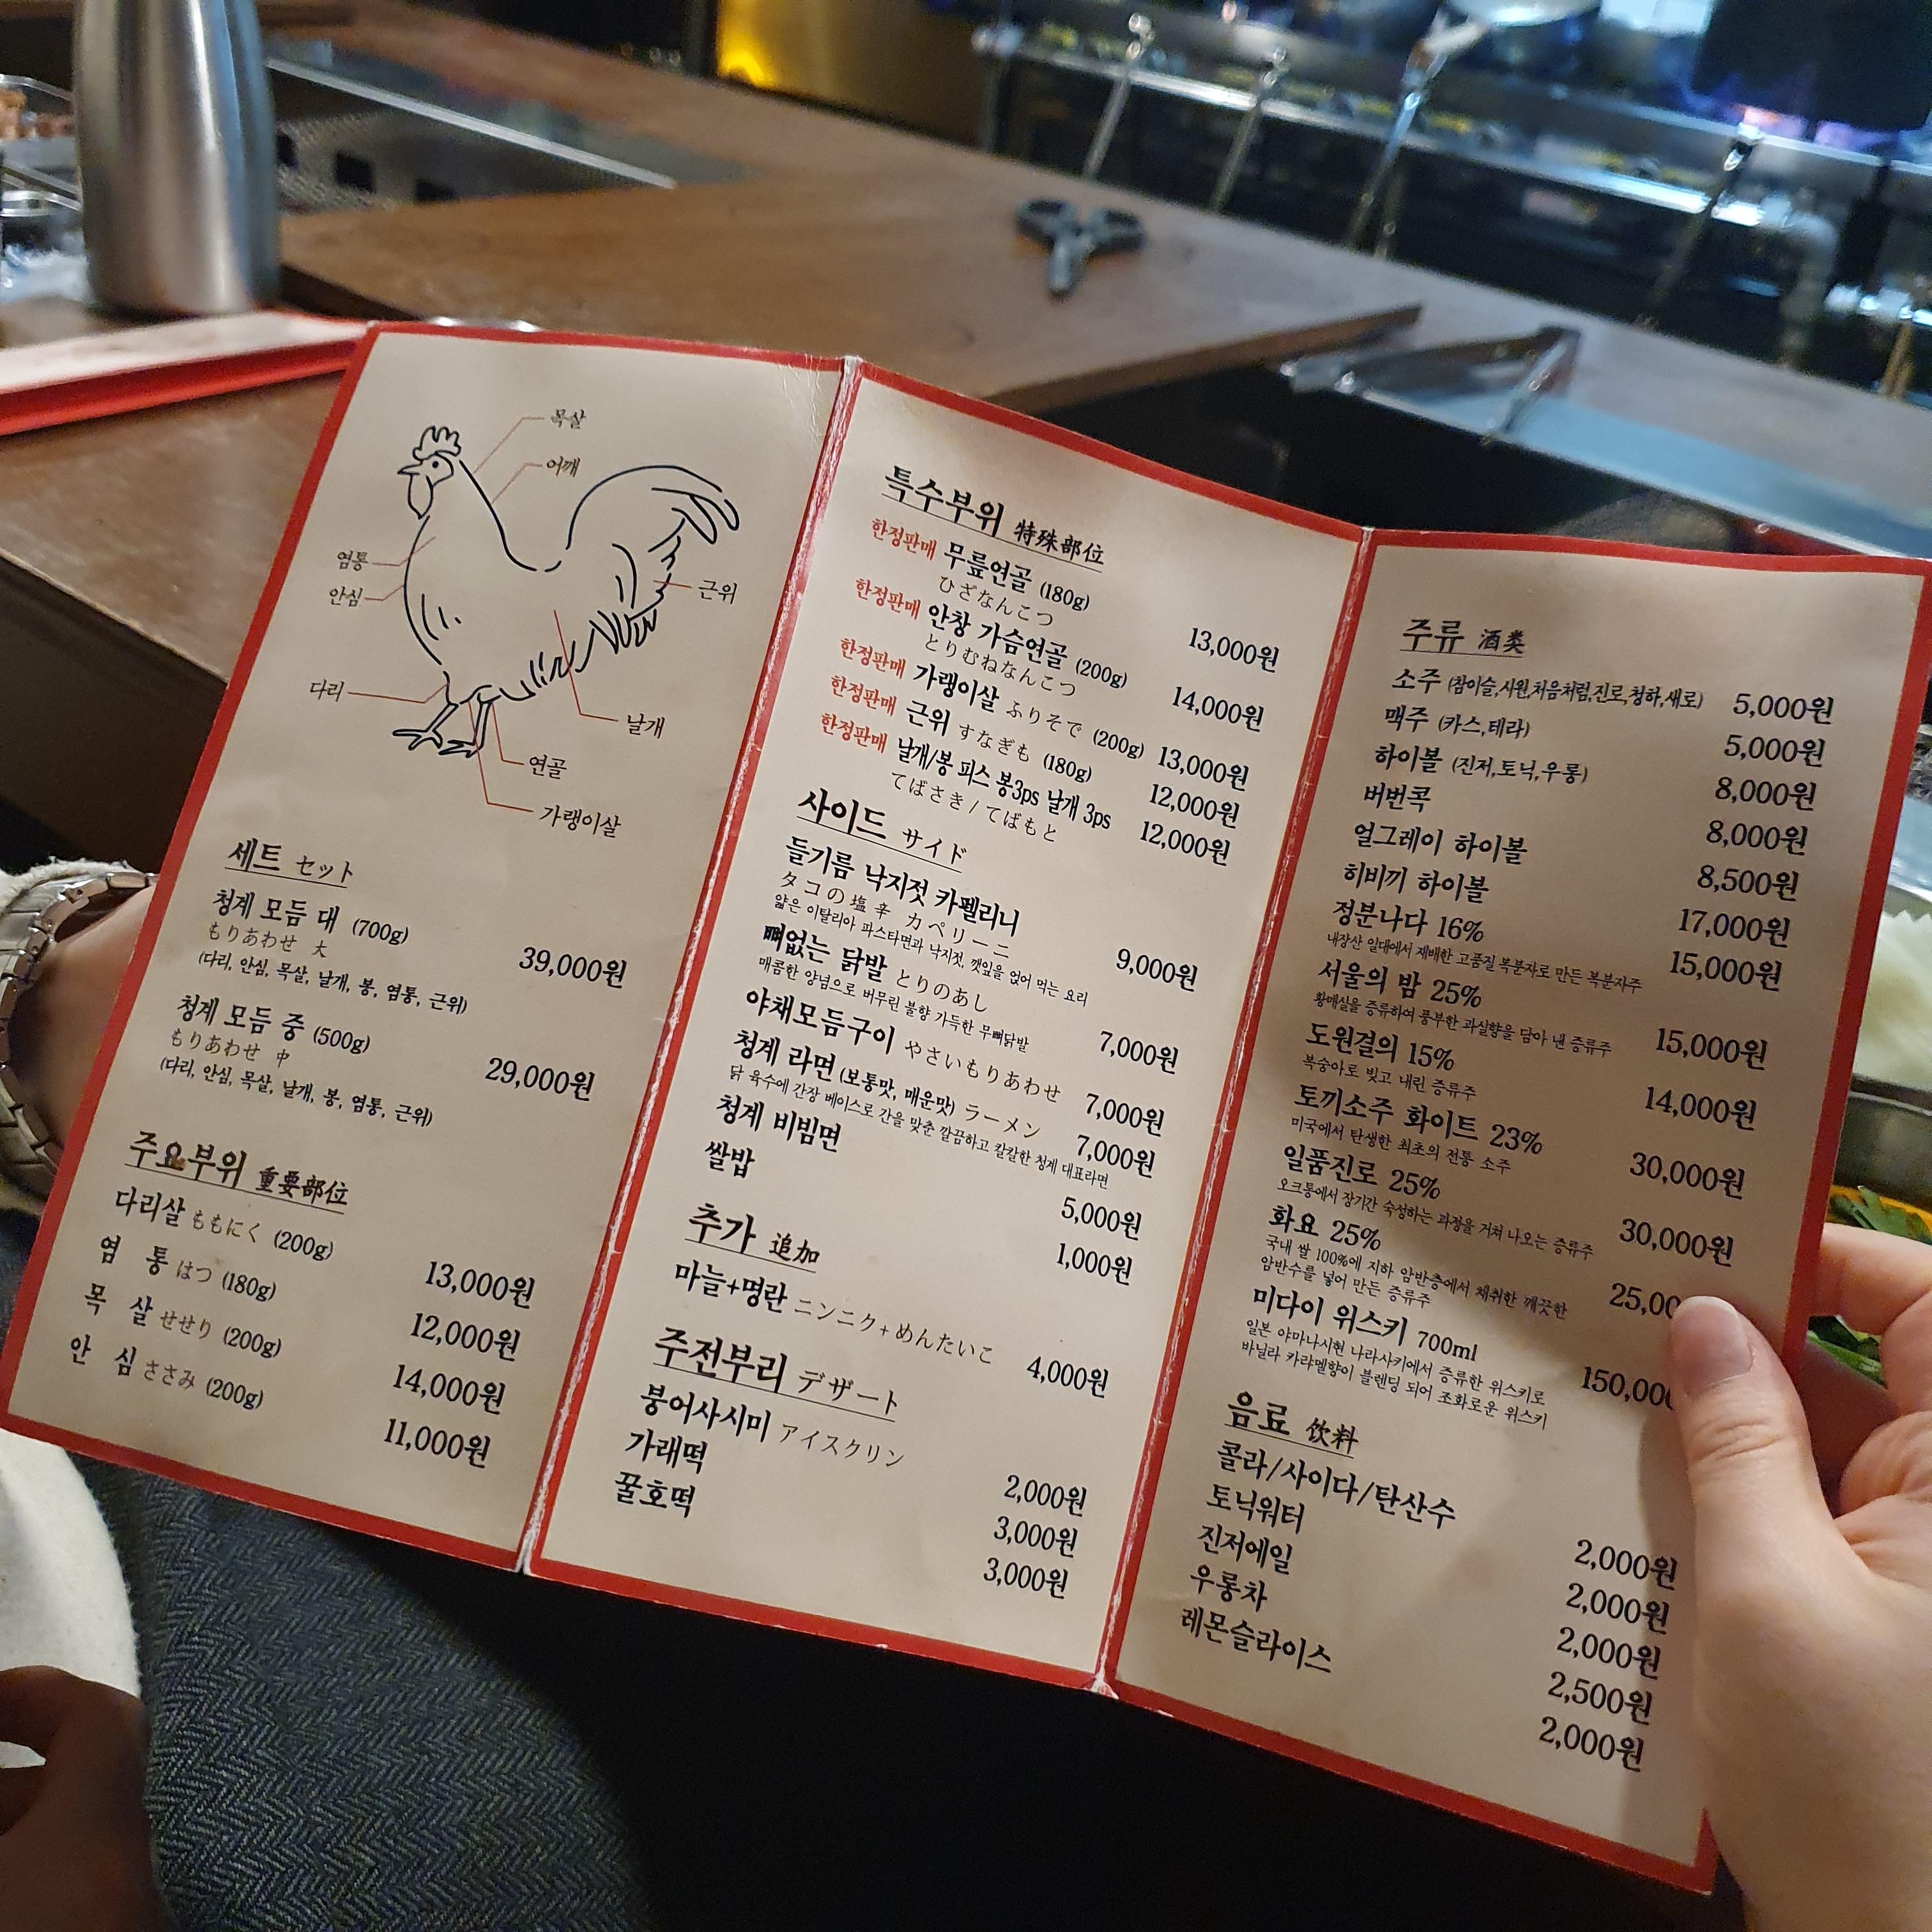 목살
어깨
염통
안심
근위
다리
날개
연골
가랭이살
세트 セット
청계 모듬 대 (700g) 39,000원
もりあわせ 大
(다리, 안심, 목살, 날개, 봉, 염통, 근위)
청계 모듬 중 (500g) 29,000원
もりあわせ 中
(다리, 안심, 목살, 날개, 봉, 염통, 근위)
주요부위 重要部位
다리살 ももにく (200g) 13,000원
염 통 はつ (180g) 12,000원
목 살 せせり (200g) 14,000원
안 심 ささみ (200g) 11,000원
특수부위 特殊部位
한정판매 무릎연골 (180g) 13,000원
ひざなんこつ
한정판매 안창 가슴연골 (200g) 14,000원
とりむねなんこつ
한정판매 가랭이살 ふりそで (200g) 13,000원
한정판매 근위 すなぎも (180g) 12,000원
한정판매 날개/봉 피스 봉3ps 날개 3ps 12,000원
てばさき / てばもと
사이드 サイド
들기름 낙지젓 카펠리니 9,000원
タコの塩辛 カペリーニ
얇은 이탈리아 파스타면과 낙지젓, 깻잎을 얹어 먹는 요리
뼈없는 닭발 とりのあし 7,000원
매콤한 양념으로 버무린 불향 가득한 무뼈닭발
야채모듬구이 やさいもりあわせ 7,000원
청계 라면 (보통맛, 매운맛) ラーメン 7,000원
닭 육수에 간장 베이스로 간을 맞춘 깔끔하고 칼칼한 청계 대표라면
청계 비빔면 5,000원
쌀밥 1,000원
추가 追加
마늘+명란 ニンニク+めんたいこ 4,000원
주전부리 デザート
붕어사시미 アイスクリン 2,000원
가래떡 3,000원
꿀호떡 3,000원
주류 酒类
소주 (참이슬,시원,처음처럼,진로,청하,새로) 5,000원
맥주 (카스,테라) 5,000원
하이볼 (진저,토닉,우롱) 8,000원
버번콕 8,000원
얼그레이 하이볼 8,500원
히비끼 하이볼 17,000원
정분나다 16% 15,000원
내장산 일대에서 재배한 고품질 복분자로 만든 복분자주
서울의 밤 25% 15,000원
황매실을 증류하여 풍부한 과실향을 담아 낸 증류주
도원결의 15% 14,000원
복숭아로 빚고 내린 증류주
토끼소주 화이트 23% 30,000원
미국에서 탄생한 최초의 전통 소주
일품진로 25% 30,000원
오크통에서 장기간 숙성하는 과정을 거쳐 나오는 증류주
화요 25% 25,00
국내 쌀 100%에 지하 암반층에서 채취한 깨끗한
암반수를 넣어 만든 증류주
미다이 위스키 700ml 150,00
일본 야마나시현 나라사키에서 증류한 위스키로
바닐라 카라멜향이 블렌딩 되어 조화로운 위스키
음료 饮料
콜라/사이다/탄산수 2,000원
토닉워터 2,000원
진저에일 2,000원
우롱차 2,500원
레몬슬라이스 2,000원